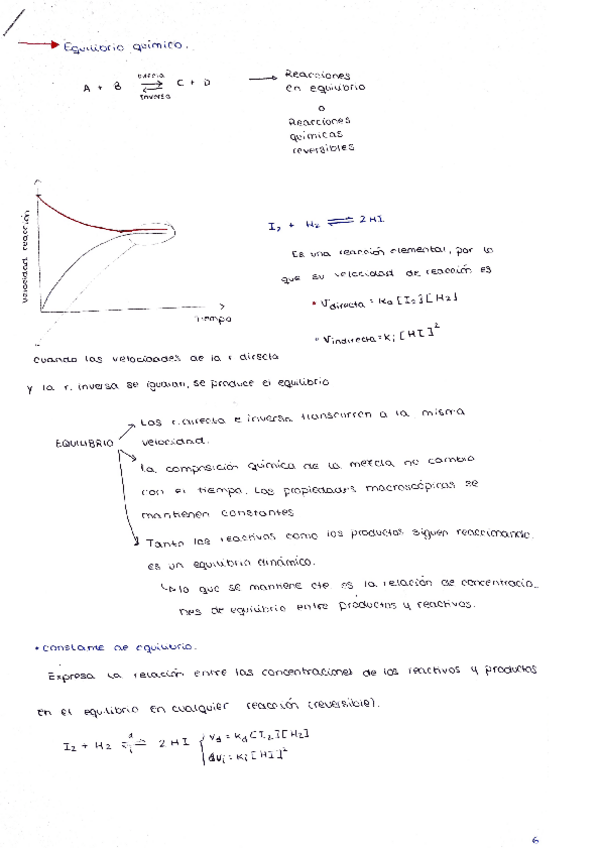 Equilibrio químico.
A + B ⇌ C + D
directa
inversa
→ Reacciones
en equilibrio
o
Reacciones
químicas
reversibles
velocidad reacción
Tiempo
I₂ + H₂ ⇌ 2HI
Es una reacción elemental, por lo
que su velocidad de reacción es
• Vdirecta = Kd [I₂][H₂]
• Vindirecta = Ki [HI]²
cuando las velocidades de la r directa
y la r. inversa se igualan, se produce el equilibrio
EQUILIBRIO
Las r. directa e inversa transcurren a la misma
velocidad.
la composición química de la mezcla no cambia
con el tiempo. Las propiedades macroscópicas se
mantienen constantes
Tanto los reactivos como los productos siguen reaccionando.
es un equilibrio dinámico.
↳ lo que se mantiene cte es la relación de concentracio_
nes de equilibrio entre productos y reactivos.
• constante de equilibrio.
Expresa la relación entre las concentraciones de los reactivos y productos
en el equilibrio en cualquier reacción (reversible).
I₂ + H₂ ⇌ 2HI { Vd = Kd [I₂][H₂]
Vi = Ki [HI]²
6